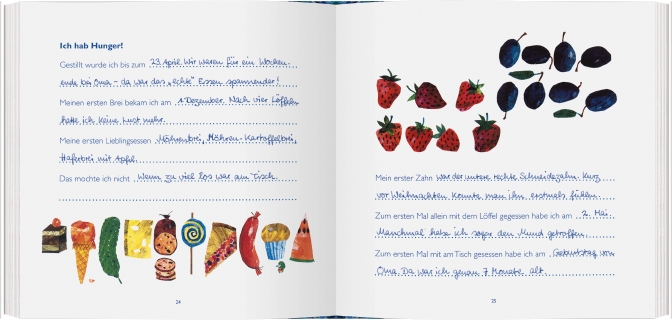 Ich hab Hunger!
Gestillt wurde ich bis zum 23. April. Wir waren für ein Wochen-
ende bei Oma - da war das „echte“ Essen spannender!
Meinen ersten Brei bekam ich am 1. Dezember. Nach vier Löffeln
hatte ich keine Lust mehr.
Meine ersten Lieblingsessen Möhrenbrei, Möhren-Kartoffelbrei,
Haferbrei mit Apfel.
Das mochte ich nicht Wenn zu viel los war am Tisch.
24
Mein erster Zahn war der untere rechte Schneidezahn. Kurz
vor Weihnachten konnte man ihn erstmals fühlen.
Zum ersten Mal allein mit dem Löffel gegessen habe ich am 2. Mai.
Manchmal habe ich sogar den Mund getroffen.
Zum ersten Mal mit am Tisch gesessen habe ich am Geburtstag von
Oma. Da war ich genau 7 Monate alt.
25